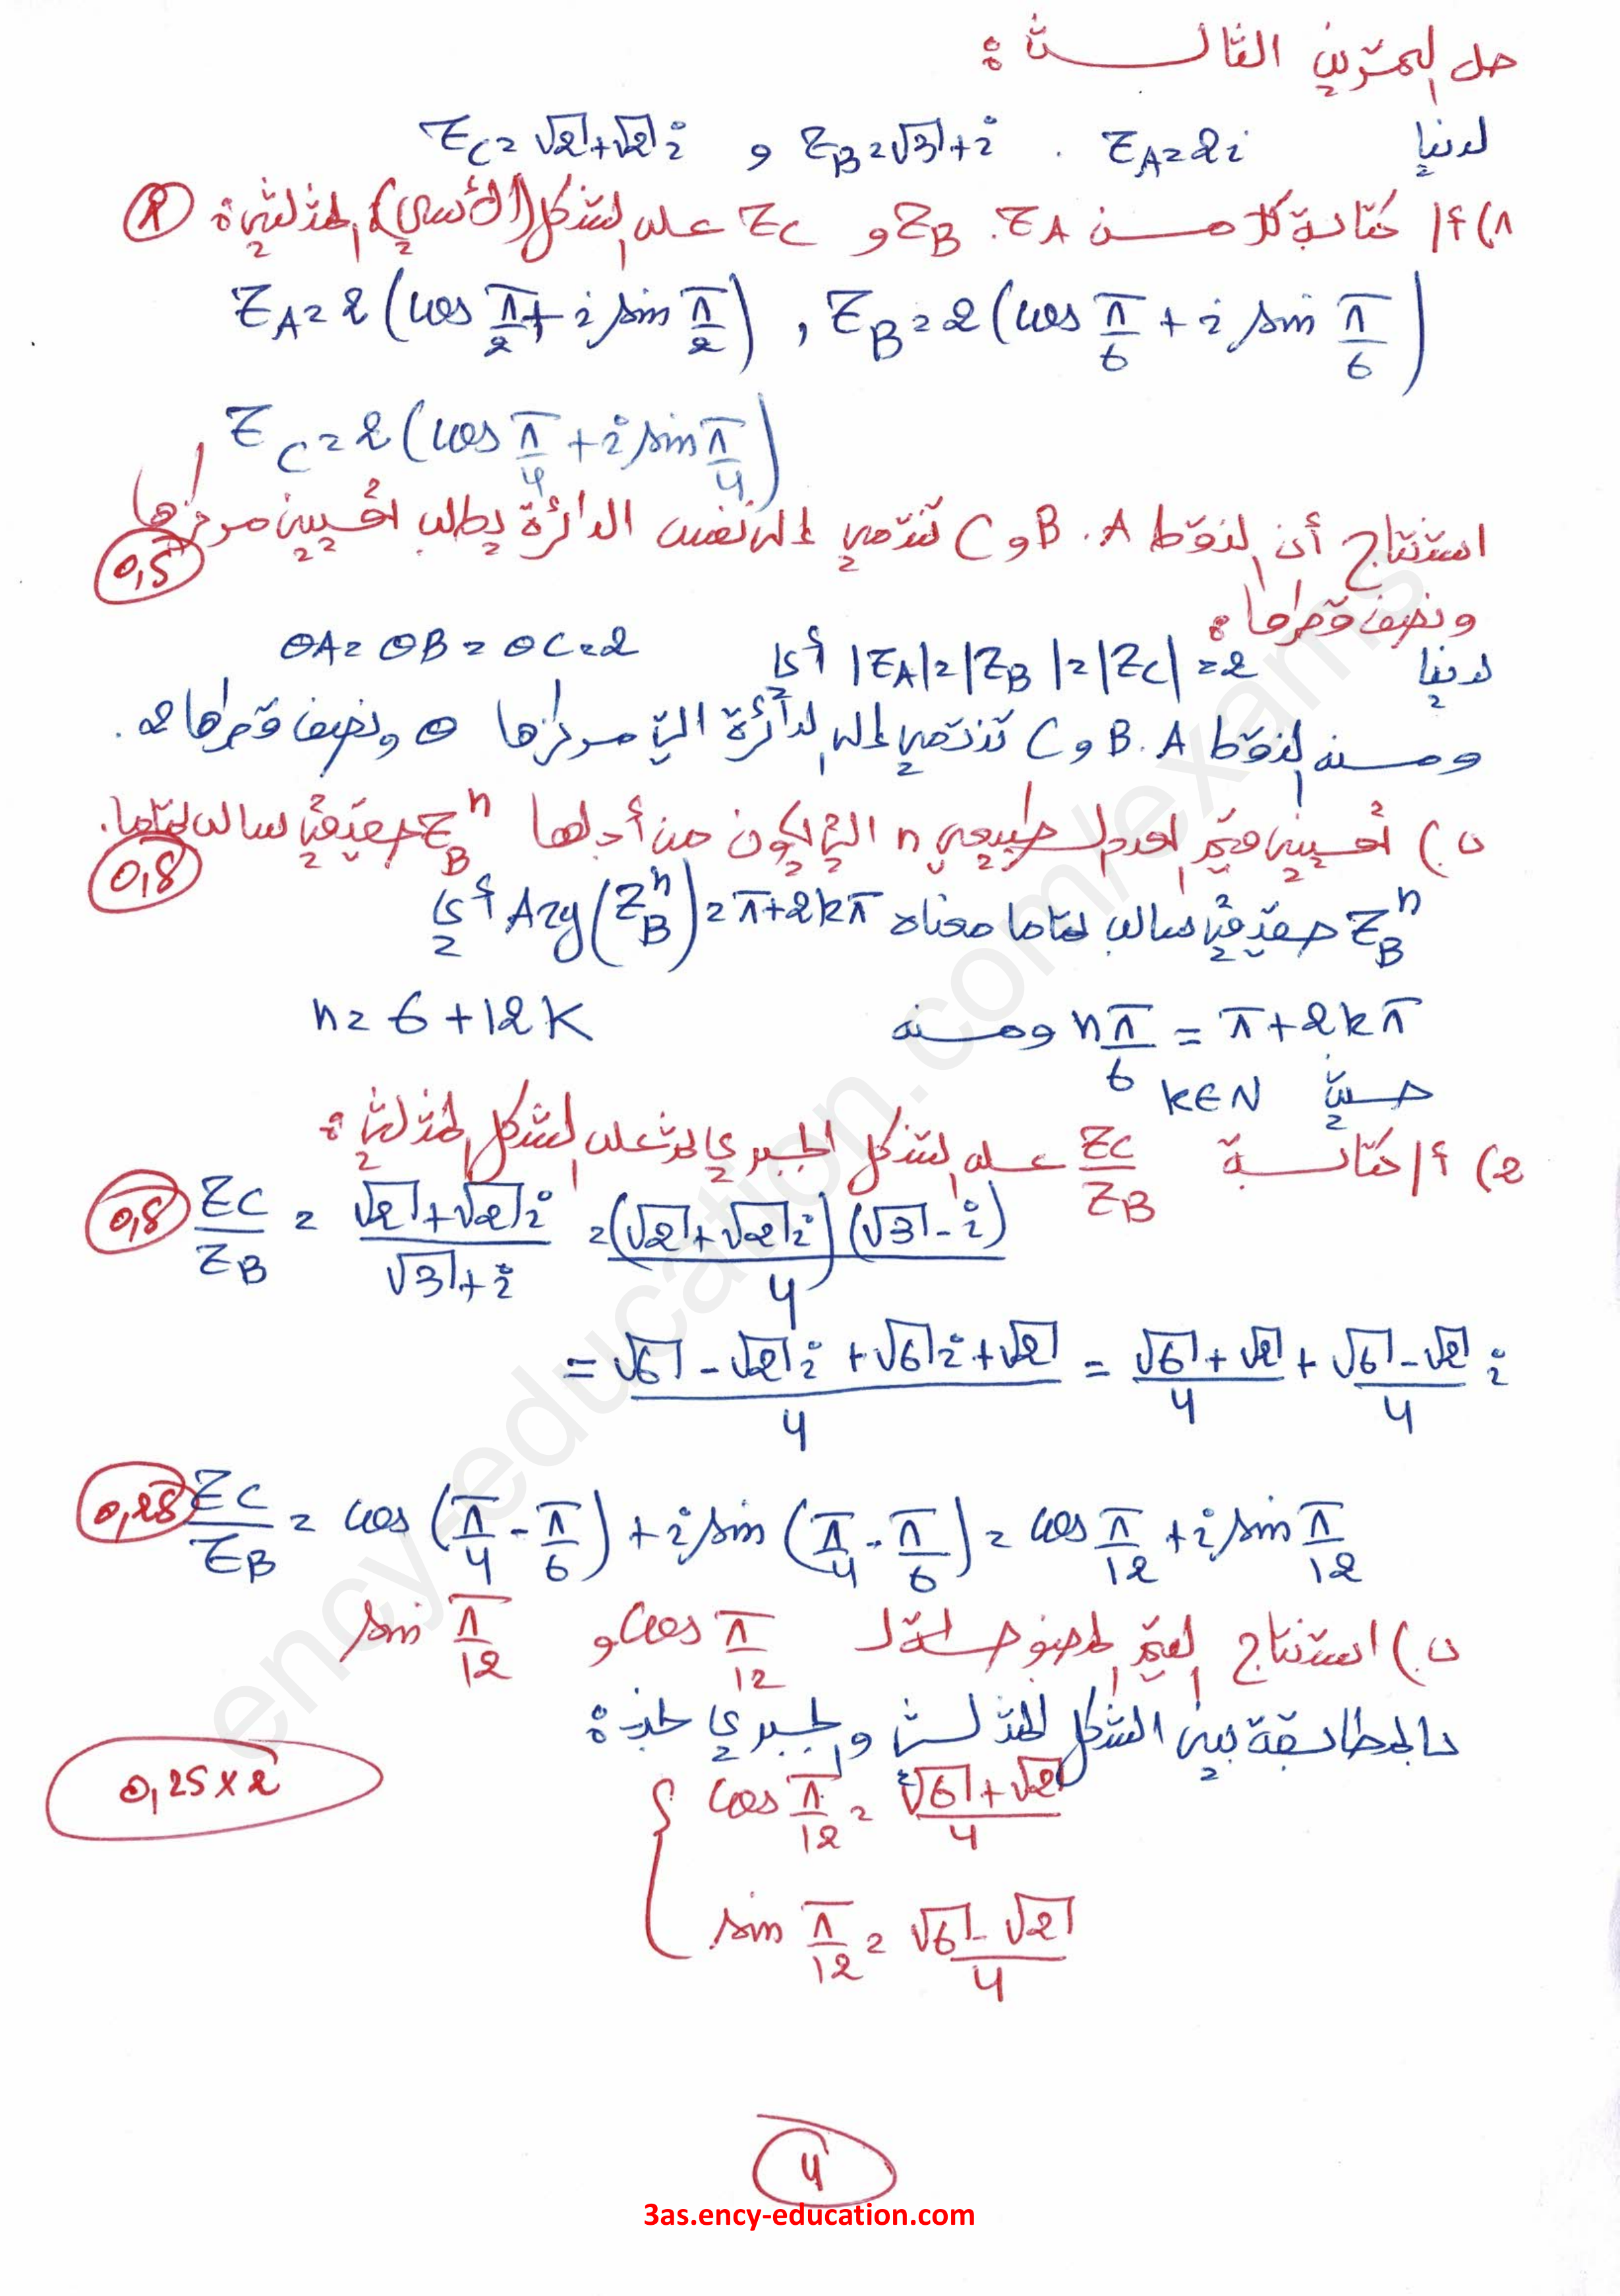 حل التمرين الثالث :
لدينا z_A = 2i . z_B = √3 + i و z_C = √2 + √2 i
1) أ/ كتابة كلا من z_A . z_B و z_C على الشكل (الأسي) المثلثي : ②
z_A = 2 (cos π/2 + i sin π/2) , z_B = 2 (cos π/6 + i sin π/6)
z_C = 2 (cos π/4 + i sin π/4)
استنتاج أن النقط A . B و C تنتمي إلى نفس الدائرة يطلب تعيين مركزها
0,5
ونصف قطرها :
لدينا |z_A| = |z_B| = |z_C| = 2 أي OA = OB = OC = 2
ومنه النقط A . B و C تنتمي إلى الدائرة التي مركزها O ونصف قطرها 2 .
ب) تعيين قيم العدد الطبيعي n التي يكون من أجلها z_B^n حقيقي سالب تماما .
0,5
z_B^n حقيقي سالب تماما معناه Arg(z_B^n) = π + 2kπ أي
n π/6 = π + 2kπ ومنه n = 6 + 12k
حيث k ∈ N
2) أ/ كتابة z_C/z_B على الشكل الجبري ثم على الشكل المثلثي :
0,5 z_C/z_B = (√2 + √2 i)/(√3 + i) = (√2 + √2 i)(√3 - i)/4
= (√6 - √2 i + √6 i + √2)/4 = (√6 + √2)/4 + (√6 - √2)/4 i
0,25 z_C/z_B = cos (π/4 - π/6) + i sin (π/4 - π/6) = cos π/12 + i sin π/12
ب) استنتاج القيم المضبوطة لـ cos π/12 و sin π/12
بالمطابقة بين الشكل المثلثي والجبري نجد :
0,25 × 2
{ cos π/12 = (√6 + √2)/4
sin π/12 = (√6 - √2)/4
4
3as.ency-education.com
ency-education.com/exams